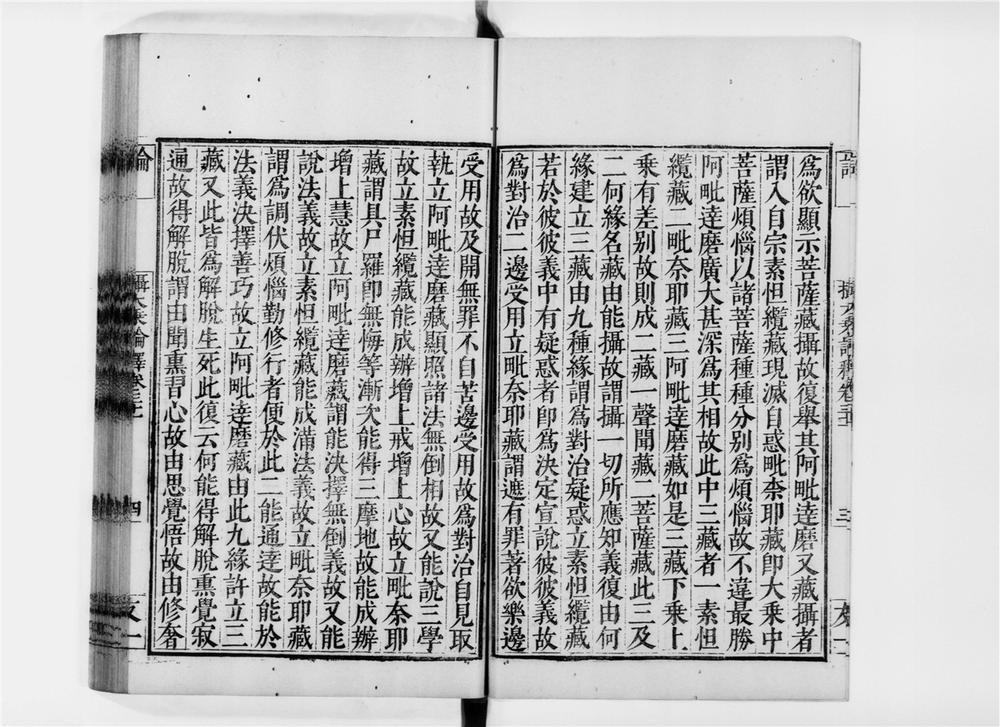 爲欲顯示菩薩藏攝故復舉其阿毗達磨又藏攝者
謂入自宗素怛纜藏現滅自惑毗柰耶藏卽大乘中
菩薩煩惱以諸菩薩種種分别爲煩惱故不違最勝
阿毗達磨廣大甚深爲其相故此中三藏者一素怛
纜藏二毗奈耶藏三阿毗達磨藏如是三藏下乘上
乘有差别故則成二藏一聲聞藏二菩薩藏此三及
二何緣名藏由能攝故謂攝一切所應知義復由何
緣建立三藏由九種緣謂爲對治疑惑立素怛纜藏
若於彼彼義中有疑惑者卽爲決定宣說彼彼義故
爲對治二邊受用立毗奈耶藏謂遮有罪著欲樂邊
受用故及開無罪不自苦邊受用故爲對治自見取
執立阿毗達磨藏顯照諸法無倒相故又能說三學
故立素怛纜藏能成辦增上戒增上心故立毗奈耶
藏謂具尸羅卽無悔等漸次能得三摩地故能成辦
增上慧故立阿毗達磨藏謂能決擇無倒義故又能
說法義故立素怛纜藏能成滿法義故立毗奈耶藏
謂爲調伏煩惱勤修行者便於此二能通達故能於
法義決擇善巧故立阿毗達磨藏由此九緣許立三
藏又此皆爲解脫生死此復云何能得解脫熏覺寂
通故得解脫謂由聞熏習心故由思覺悟故由修奢
論
攝大乘論釋卷三
四